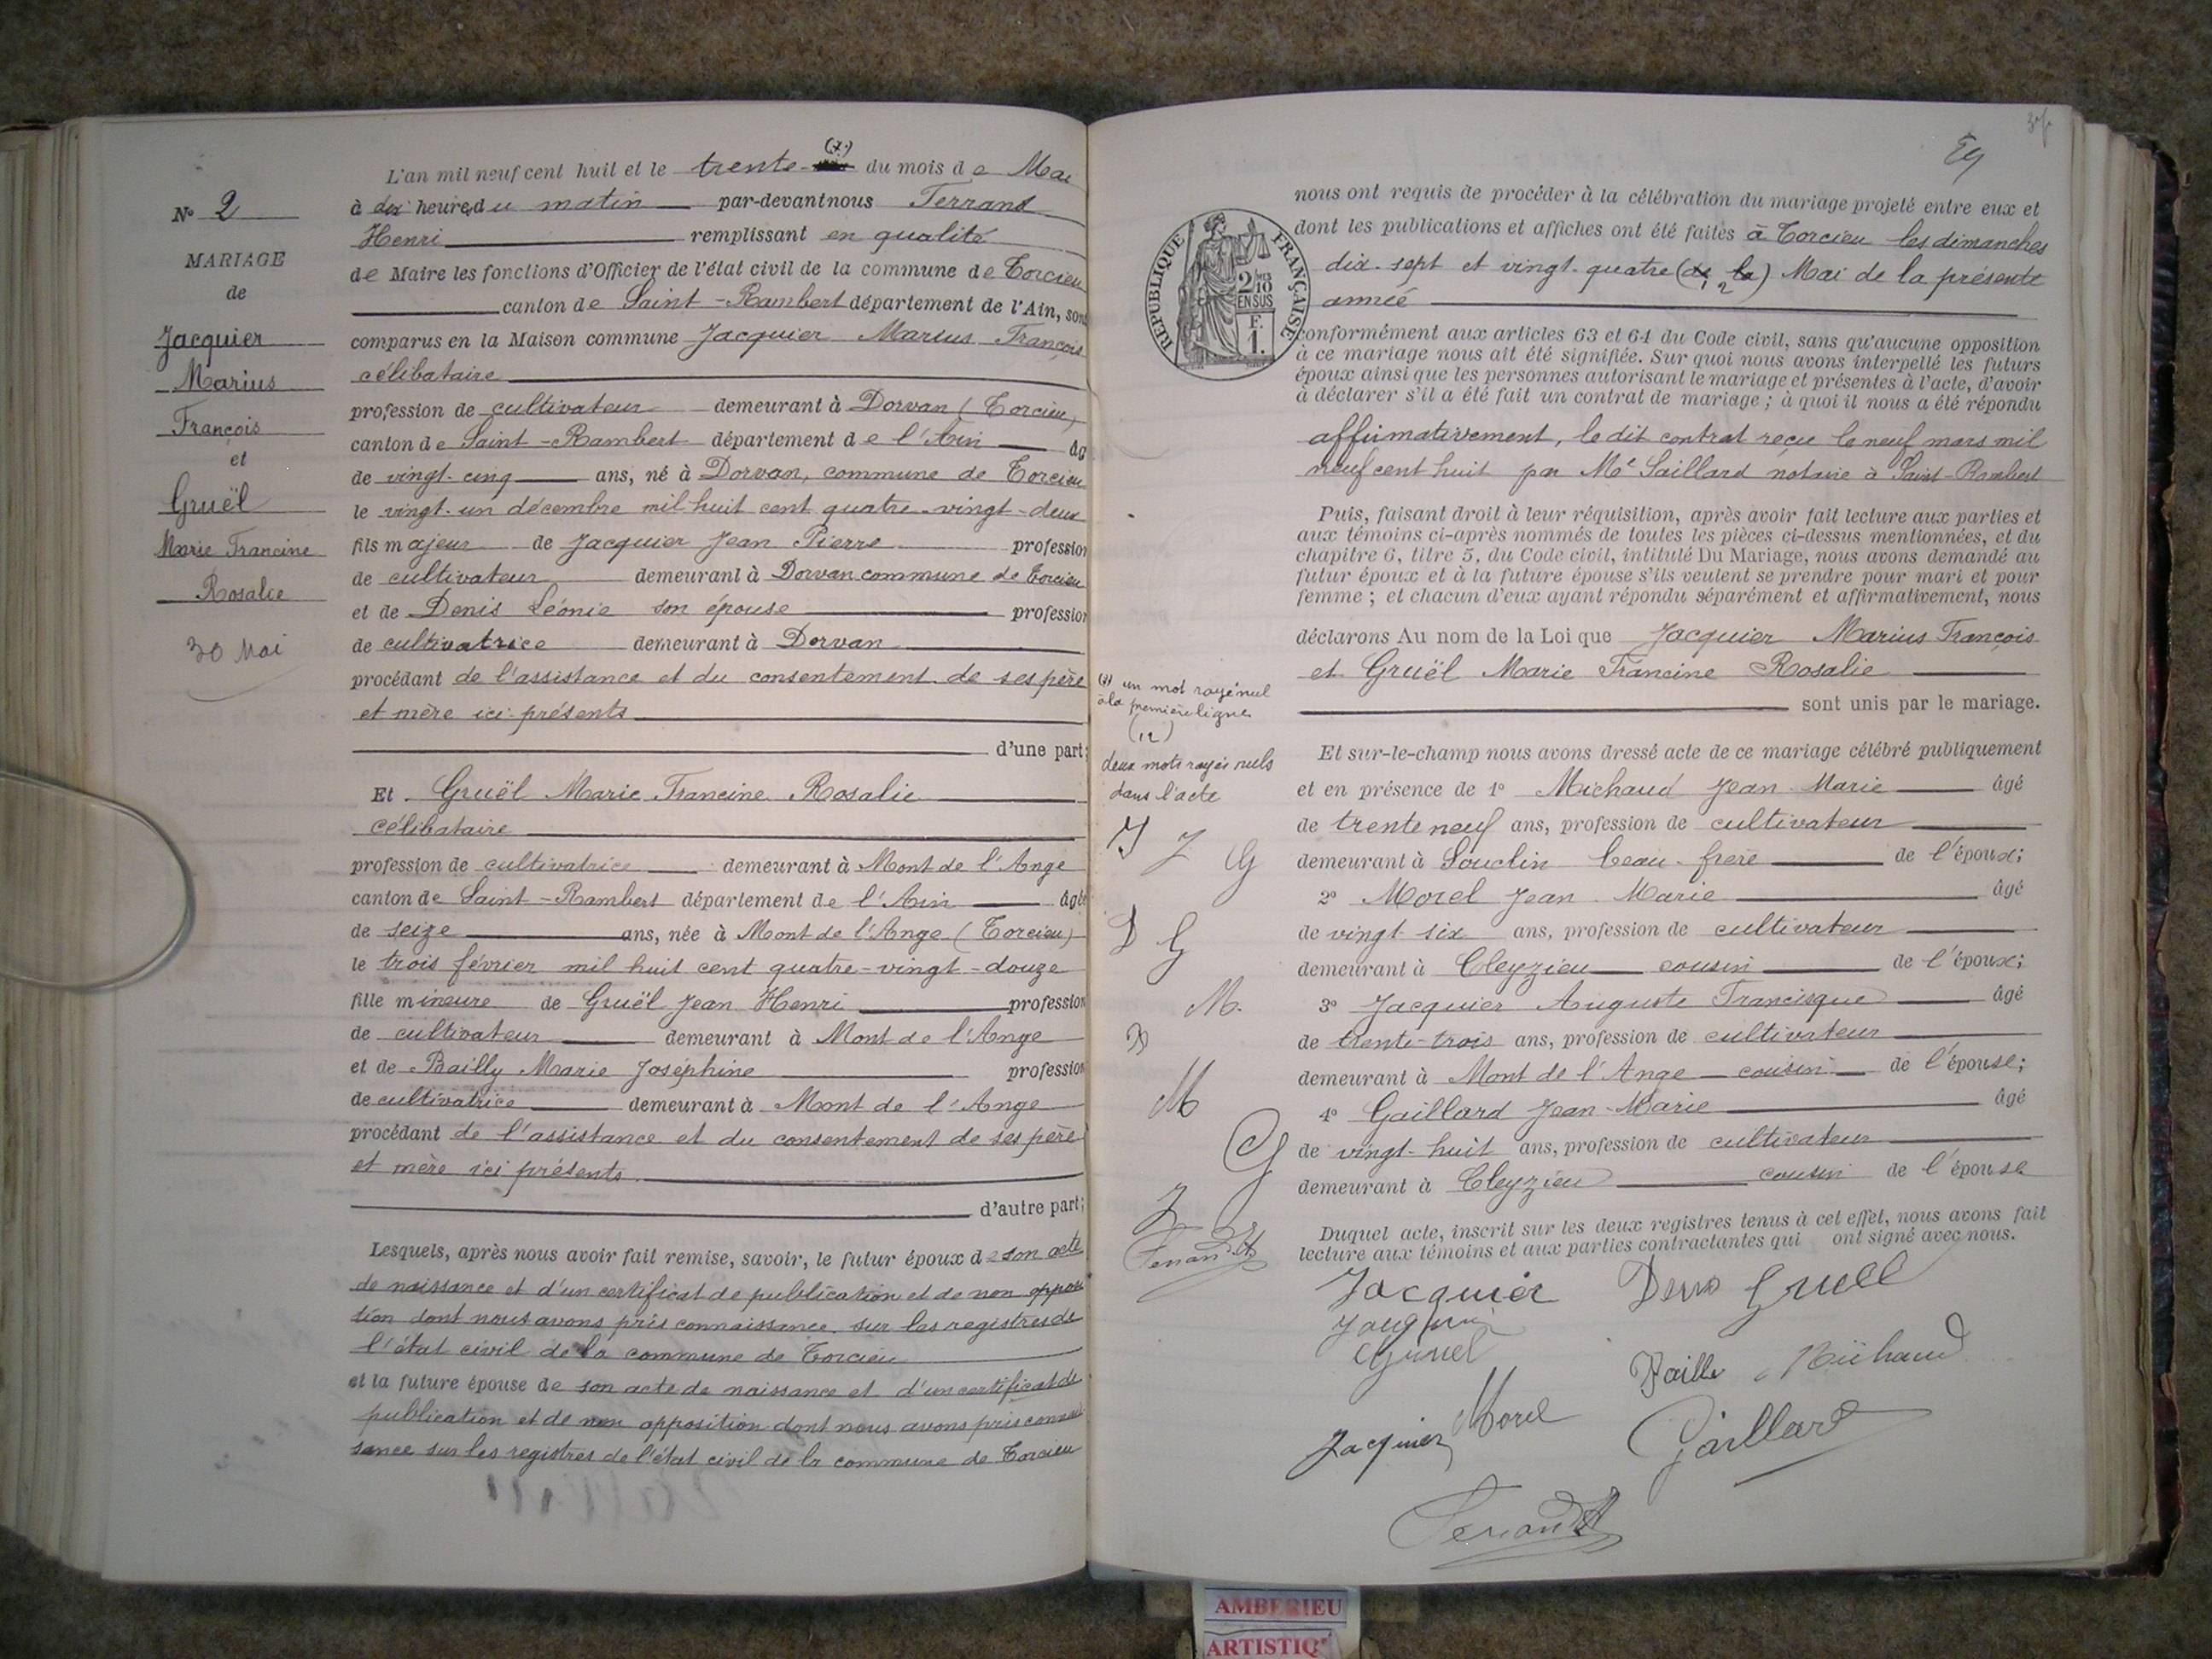 N° 2
MARIAGE
de
Jacquier
Marius
François
et
Gruël
Marie Francine
Rosalie
30 Mai
(1)
L'an mil neuf cent huit et le trente- du mois de Mai
à dix heures du matin par-devant nous Ferrand
Henri remplissant en qualité
de Maire les fonctions d'Officier de l'état civil de la commune de Torcieu
canton de Saint-Rambert département de l'Ain, sont
comparus en la Maison commune Jacquier Marius François
célibataire
profession de cultivateur demeurant à Dorvan (Torcieu)
canton de Saint-Rambert département de l'Ain âg
de vingt-cinq ans, né à Dorvan, commune de Torcieu
le vingt-un décembre mil huit cent quatre-vingt-deux
fils majeur de Jacquier Jean Pierre profession
de cultivateur demeurant à Dorvan commune de Torcieu
et de Denis Léonie son épouse profession
de cultivatrice demeurant à Dorvan
procédant de l'assistance et du consentement de ses père
et mère ici présents
d'une part;
Et Gruël Marie Francine Rosalie
célibataire
profession de cultivatrice demeurant à Mont de l'Ange
canton de Saint-Rambert département de l'Ain âgée
de seize ans, née à Mont de l'Ange (Torcieu)
le trois février mil huit cent quatre-vingt-douze
fille mineure de Gruël Jean Henri profession
de cultivateur demeurant à Mont de l'Ange
et de Bailly Marie Joséphine profession
de cultivatrice demeurant à Mont de l'Ange
procédant de l'assistance et du consentement de ses père
et mère ici présents
d'autre part;
Lesquels, après nous avoir fait remise, savoir, le futur époux de son acte
de naissance et d'un certificat de publication et de non oppos
tion dont nous avons pris connaissance sur les registres de
l'état civil de la commune de Torcieu
et la future épouse de son acte de naissance et d'un certificat de
publication et de non opposition dont nous avons pris connais
sance sur les registres de l'état civil de la commune de Torcieu
nous ont requis de procéder à la célébration du mariage projeté entre eux et
dont les publications et affiches ont été faites à Torcieu les dimanches
dix-sept et vingt-quatre (de la) Mai de la présente
année
RÉPUBLIQUE FRANÇAISE
2/10
EN SUS
F.
1.
conformément aux articles 63 et 64 du Code civil, sans qu'aucune opposition
à ce mariage nous ait été signifiée. Sur quoi nous avons interpellé les futurs
époux ainsi que les personnes autorisant le mariage et présentes à l'acte, d'avoir
à déclarer s'il a été fait un contrat de mariage; à quoi il nous a été répondu
affirmativement, le dit contrat reçu le neuf mars mil
neuf cent huit par Me Saillard notaire à Saint-Rambert
Puis, faisant droit à leur réquisition, après avoir fait lecture aux parties et
aux témoins ci-après nommés de toutes les pièces ci-dessus mentionnées, et du
chapitre 6, titre 5, du Code civil, intitulé Du Mariage, nous avons demandé au
futur époux et à la future épouse s'ils veulent se prendre pour mari et pour
femme; et chacun d'eux ayant répondu séparément et affirmativement, nous
déclarons Au nom de la Loi que Jacquier Marius François
et Gruël Marie Francine Rosalie
sont unis par le mariage.
Et sur-le-champ nous avons dressé acte de ce mariage célébré publiquement
et en présence de 1° Michaud Jean-Marie âgé
de trente neuf ans, profession de cultivateur
demeurant à Souclin beau-frère de l'époux;
2° Morel Jean Marie âgé
de vingt six ans, profession de cultivateur
demeurant à Cleyzieu cousin de l'époux;
3° Jacquier Auguste Francisque âgé
de trente-trois ans, profession de cultivateur
demeurant à Mont de l'Ange cousin de l'épouse;
4° Gaillard Jean-Marie âgé
de vingt-huit ans, profession de cultivateur
demeurant à Cleyzieu cousin de l'épouse
Duquel acte, inscrit sur les deux registres tenus à cet effet, nous avons fait
lecture aux témoins et aux parties contractantes qui ont signé avec nous.
(1) un mot rayé nul
à la première ligne
(12)
deux mots rayés nuls
dans l'acte
J J G
D G
M.
B
M
G
J
Ferrand H
Jacquier Denis Gruel
Jacquier
Gruel
Bailly Michaud
Jacquier Morel
Gaillard
Ferrand H
AMBERIEU
ARTISTIQ